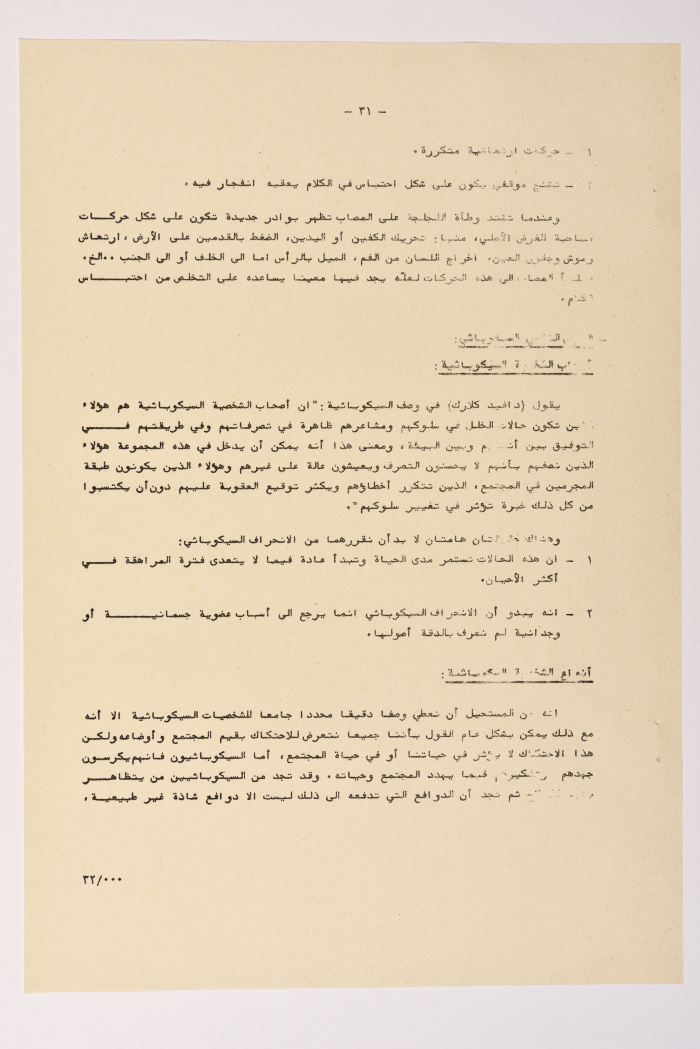 - ٣١ -
١ - حركات ارتعاشية متكررة.
٢ - تشنج موقفي يكون على شكل احتباس في الكلام يعقبه انفجار فيه.
وعندما تشتد وطأة اللجلجة على المصاب تظهر بوادر جديدة تكون على شكل حركات
مصاحبة للعرض الأصلي، منها: تحريك الكفين أو اليدين، الضغط بالقدمين على الأرض، ارتعاش
رموش وجفون العين، اخراج اللسان من الفم، الميل بالرأس اما الى الخلف أو الى الجنب ..الخ.
المصاب الى هذه الحركات لعلّه يجد فيها معينا يساعده على التخلص من احتباس
الكلام.
السيكوباثي:
السيكوباثية:
يقول (دافيد كلارك) في وصف السيكوباثية: "ان أصحاب الشخصية السيكوباثية هم هؤلاء
الذين تكون حالات الخلل في سلوكهم ومشاعرهم ظاهرة في تصرفاتهم وفي طريقتهم في
التوفيق بين أنفسهم وبين البيئة، ومعنى هذا أنه يمكن أن يدخل في هذه المجموعة هؤلاء
الذين نصفهم بأنهم لا يحسنون التصرف ويعيشون عالة على غيرهم وهؤلاء الذين يكونون طبقة
المجرمين في المجتمع، الذين تتكرر أخطاؤهم ويكثر توقيع العقوبة عليهم دون أن يكتسبوا
من كل ذلك خبرة تؤثر في تغيير سلوكهم".
وهناك هامتان لا بد أن نقررهما من الانحراف السيكوباثي:
١ - ان هذه الحالات تستمر مدى الحياة وتبدأ عادة فيما لا يتعدى فترة المراهقة في
أكثر الأحيان.
٢ - انه يبدو أن الانحراف السيكوباثي انما يرجع الى أسباب عضوية جسمانية أو
وجدانية لم نعرف بالدقة أصولها.
أنواع الشخصية السيكوباثية:
انه من المستحيل أن نعطي وصفا دقيقا محددا جامعا للشخصيات السيكوباثية الا أنه
مع ذلك يمكن بشكل عام القول بأننا جميعا نتعرض للاحتكاك بقيم المجتمع وأوضاعه ولكن
هذا الاحتكاك لا يؤثر في حياتنا أو في حياة المجتمع، أما السيكوباثيون فانهم يكرسون
جهدهم وتفكيرهم فيما يهدد المجتمع وحياته. وقد تجد من السيكوباثيين من يتظاهر
ثم تجد أن الدوافع التي تدفعه الى ذلك ليست الا دوافع شاذة غير طبيعية،
٣٢/...